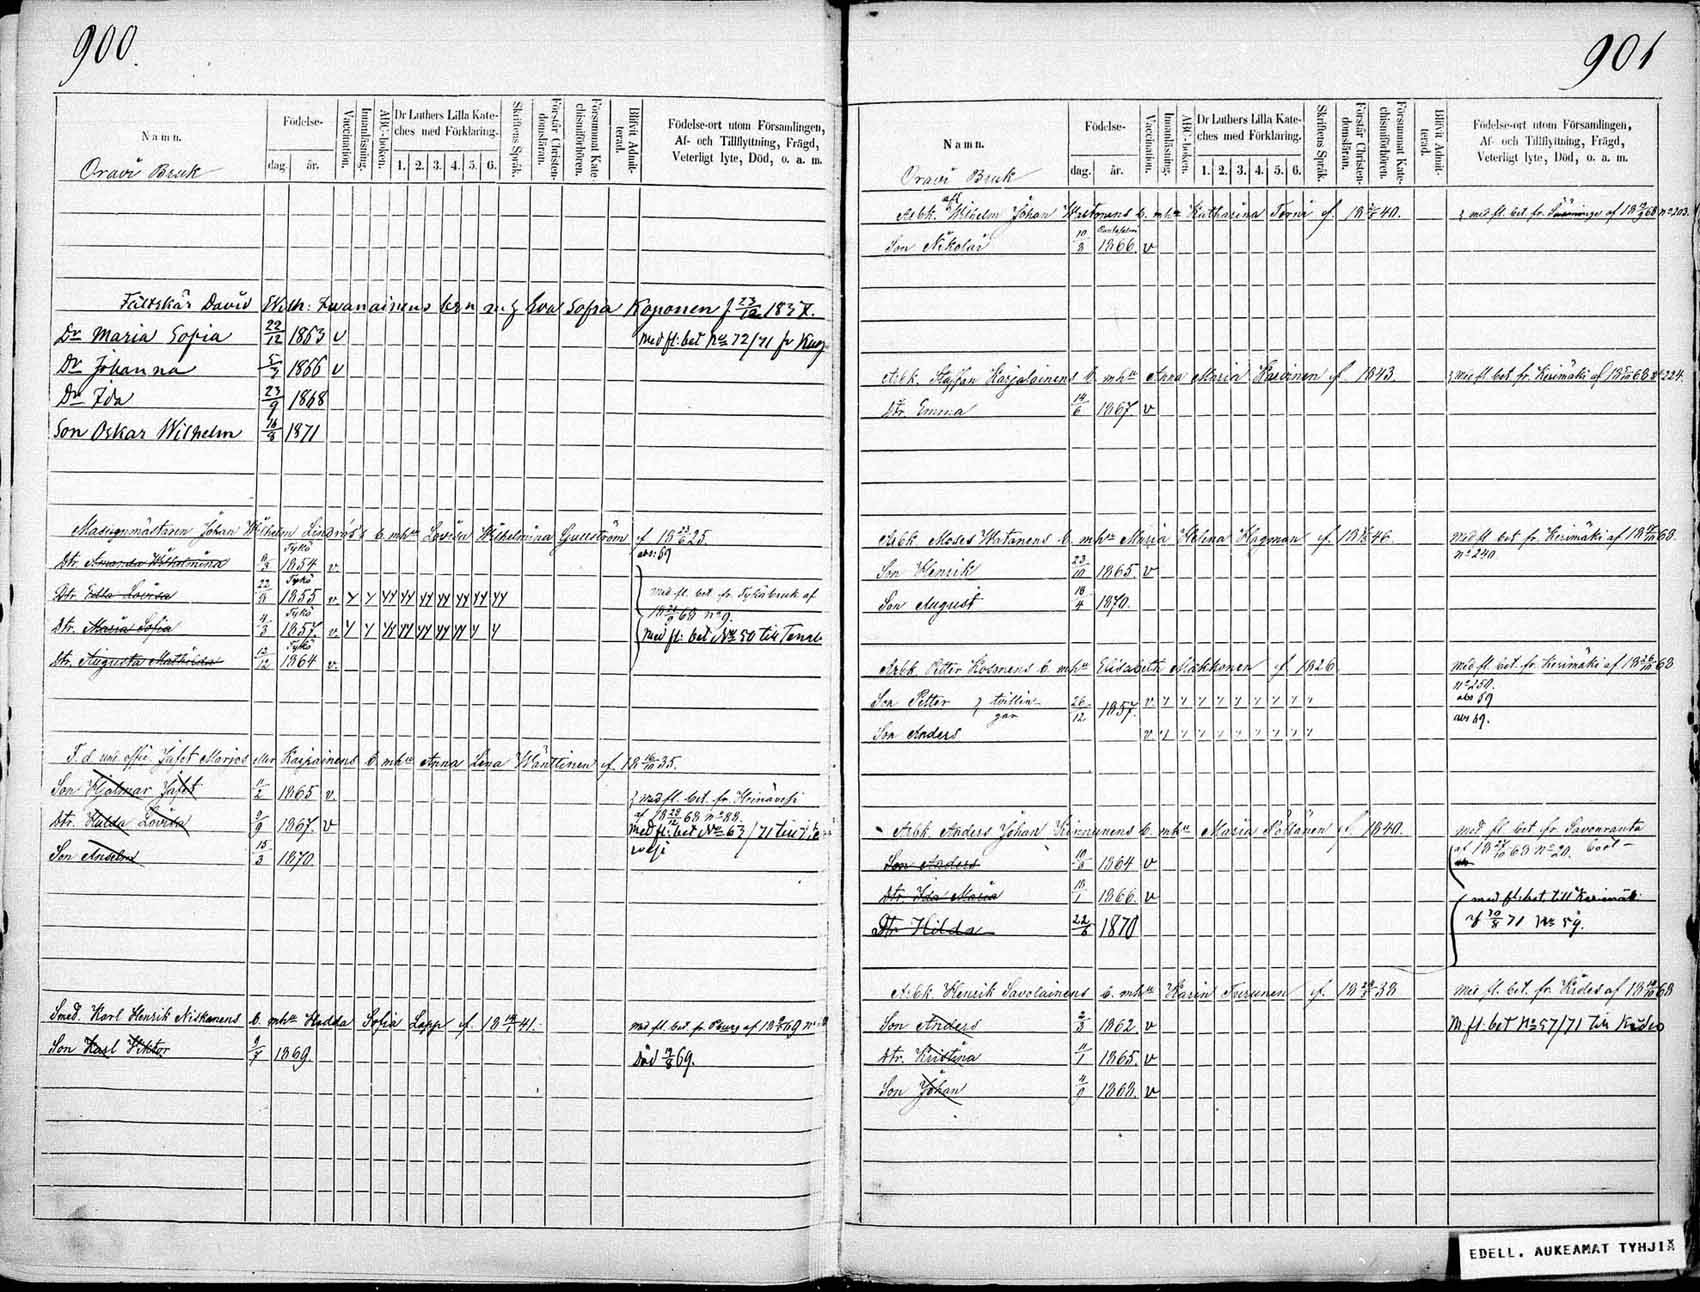 900.
Namn.
Födelse-
dag.
år.
Vaccination.
Innanläsning.
ABC-boken.
Dr Luthers Lilla Kate-
ches med Förklaring.
1. 2. 3. 4. 5. 6.
Skriftens Språk.
Förstår Christen-
domsläran.
Försummat Kate-
chismiförhören.
Blifvit Admit-
terad.
Födelse-ort utom Församlingen,
Af- och Tillflyttning, Frägd,
Veterligt lyte, Död, o. a. m.
Oravi Bruk
Fältskär David Wilh: Iwanainens brn m. h. Eva Sofia Koponen f. 23/12 183
Dr Maria Sofia 22/12 1863 v med fl: bet No 72/71 fr Kuop
Dr Johanna 5/3 1866 v
Dr Ida 23/9 1868
Son Oskar Wilhelm 16/8 1871
Johan Wilhelm Lindroos's b. mhu Lovisa Wilhelmina Gullström f 18 25.
abs: 69
Dtr. Amanda Wilhelmina Tykö 1854 v
Dtr. Lovisa 22 Tykö 1855 v
med fl. bet. fr. Tykö bruk af
68 No 9.
Dtr. Maria Sofia 4/3 Tykö 1857. v
med fl: bet No 50 till
Dtr. Augusta Mathilda 12 Tykö 1864 v.
F. d. und. offic. Jafet Marios Karjainens b. mhu Anna Lena Wänttinen f. 18 35.
Son Hjalmar Jafet 11/2 1865 v.
med fl. bet. fr. Heinävesi
af 18 68 No 88.
Dtr. Hulda Lovisa 9 1867. v
med fl: bet No 63/71 till
vesi
Son Anselm 15/3 1870.
Smed. Karl Henrik Niskanens b. mhu Hedda Sofia Lapp f. 18 41. med fl. bet. fr. af 18 69 No
Son Karl Viktor 1869 Död 69.
901
Namn.
Födelse-
dag.
år.
Vaccination.
Innanläsning.
ABC-boken.
Dr Luthers Lilla Kate-
ches med Förklaring.
1. 2. 3. 4. 5. 6.
Skriftens Språk.
Förstår Christen-
domsläran.
Försummat Kate-
chismiförhören.
Blifvit Admit-
terad.
Födelse-ort utom Församlingen,
Af- och Tillflyttning, Frägd,
Veterligt lyte, Död, o. a. m.
Oravi Bruk
Arbk. afl Wilhelm Johan b. mhu Katharina Torni f. 18 40. med fl. bet. fr. af 18 68 No 203.
Son Nikolai 10/3 Rantasalmi 1866. v
Arbk. Staffan Karjalainens b. mhu Anna Maria Karvinen f 1843. med fl. bet. fr. Kerimäki af 18 68 No 224.
Dtr. Emma 14/6 1867 v
Arbk Moses Watanens b. mhu Maria Helena Hagman f. 18 46. med fl. bet. fr. Kerimäki af 18 68.
No 240
Son Henrik 23/10 1865. v
Son August 18/4 1870.
Arbk. Petter b. mhu Elisabeth Makkonen f 1826. med fl. bet. fr. Kerimäki af 18 68
No 250.
Son Petter tvillin-
gar 26/12 1857. v
abs 69
Son Anders v
abs 69.
Arbk. Anders Johan Kinnunens b. mhu Maria Pöllänen f. 1840. med fl. bet. fr. Savonranta
af 18 68 No 20.
Son Anders 1864 v
Dtr. Ida Maria 1866. v
med fl: bet. till Kerimäki
af 30/8 71 No 59.
Dtr Hilda 22/6 1870
Arbk. Henrik Savolainens b. mhu Karin Turunen f. 18 38 med fl. bet. fr. Kides af 18 68
Son Anders 2/3 1862. v
M. fl: bet No 57/71 till Kides
Dtr. Kristina 11/1 1865. v
Son Johan 4/9 1868. v
EDELL. AUKEAMAT TYHJIÄ